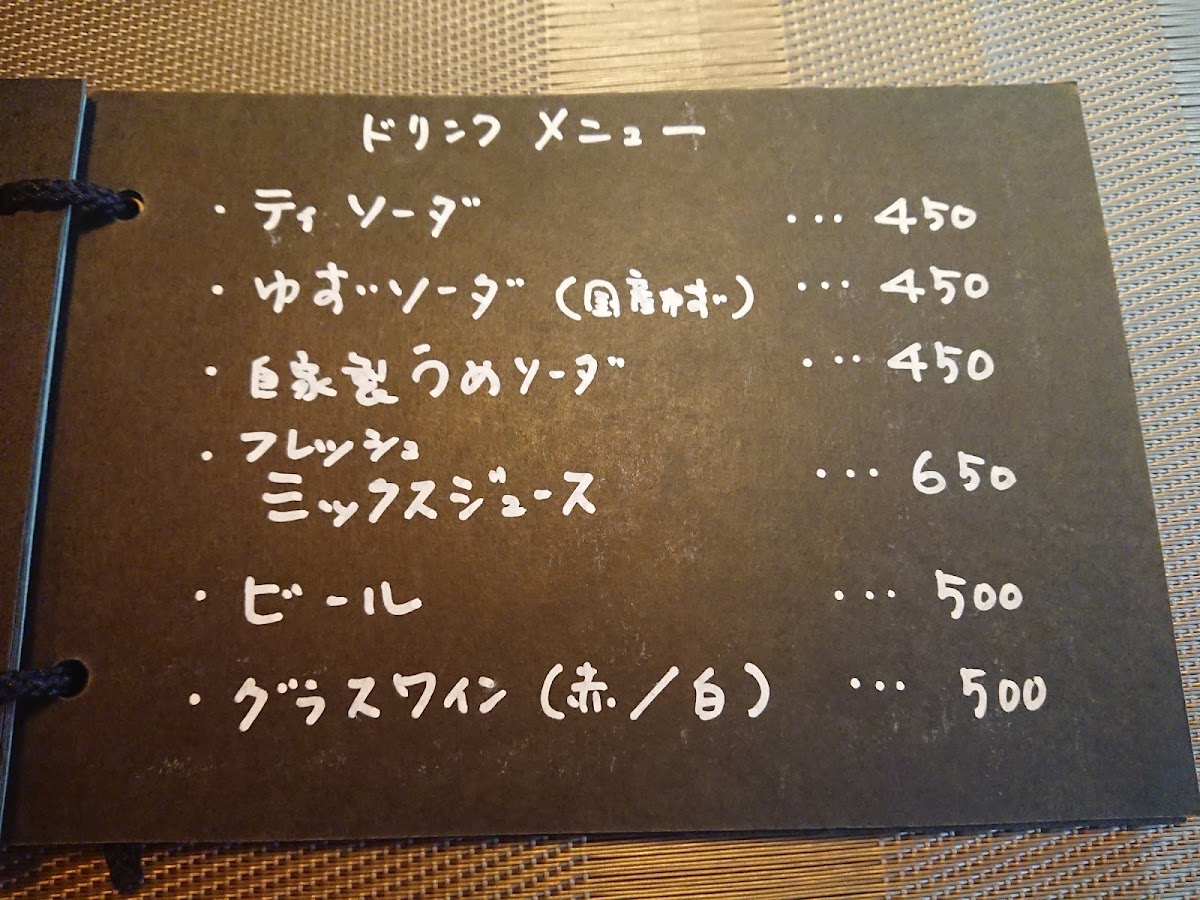 ドリンク メニュー
・ティソーダ ・・・ 450
・ゆずソーダ (国産ゆず) ・・・ 450
・自家製うめソーダ ・・・ 450
・フレッシュ
ミックスジュース ・・・ 650
・ビール ・・・ 500
・グラスワイン (赤/白) ・・・ 500